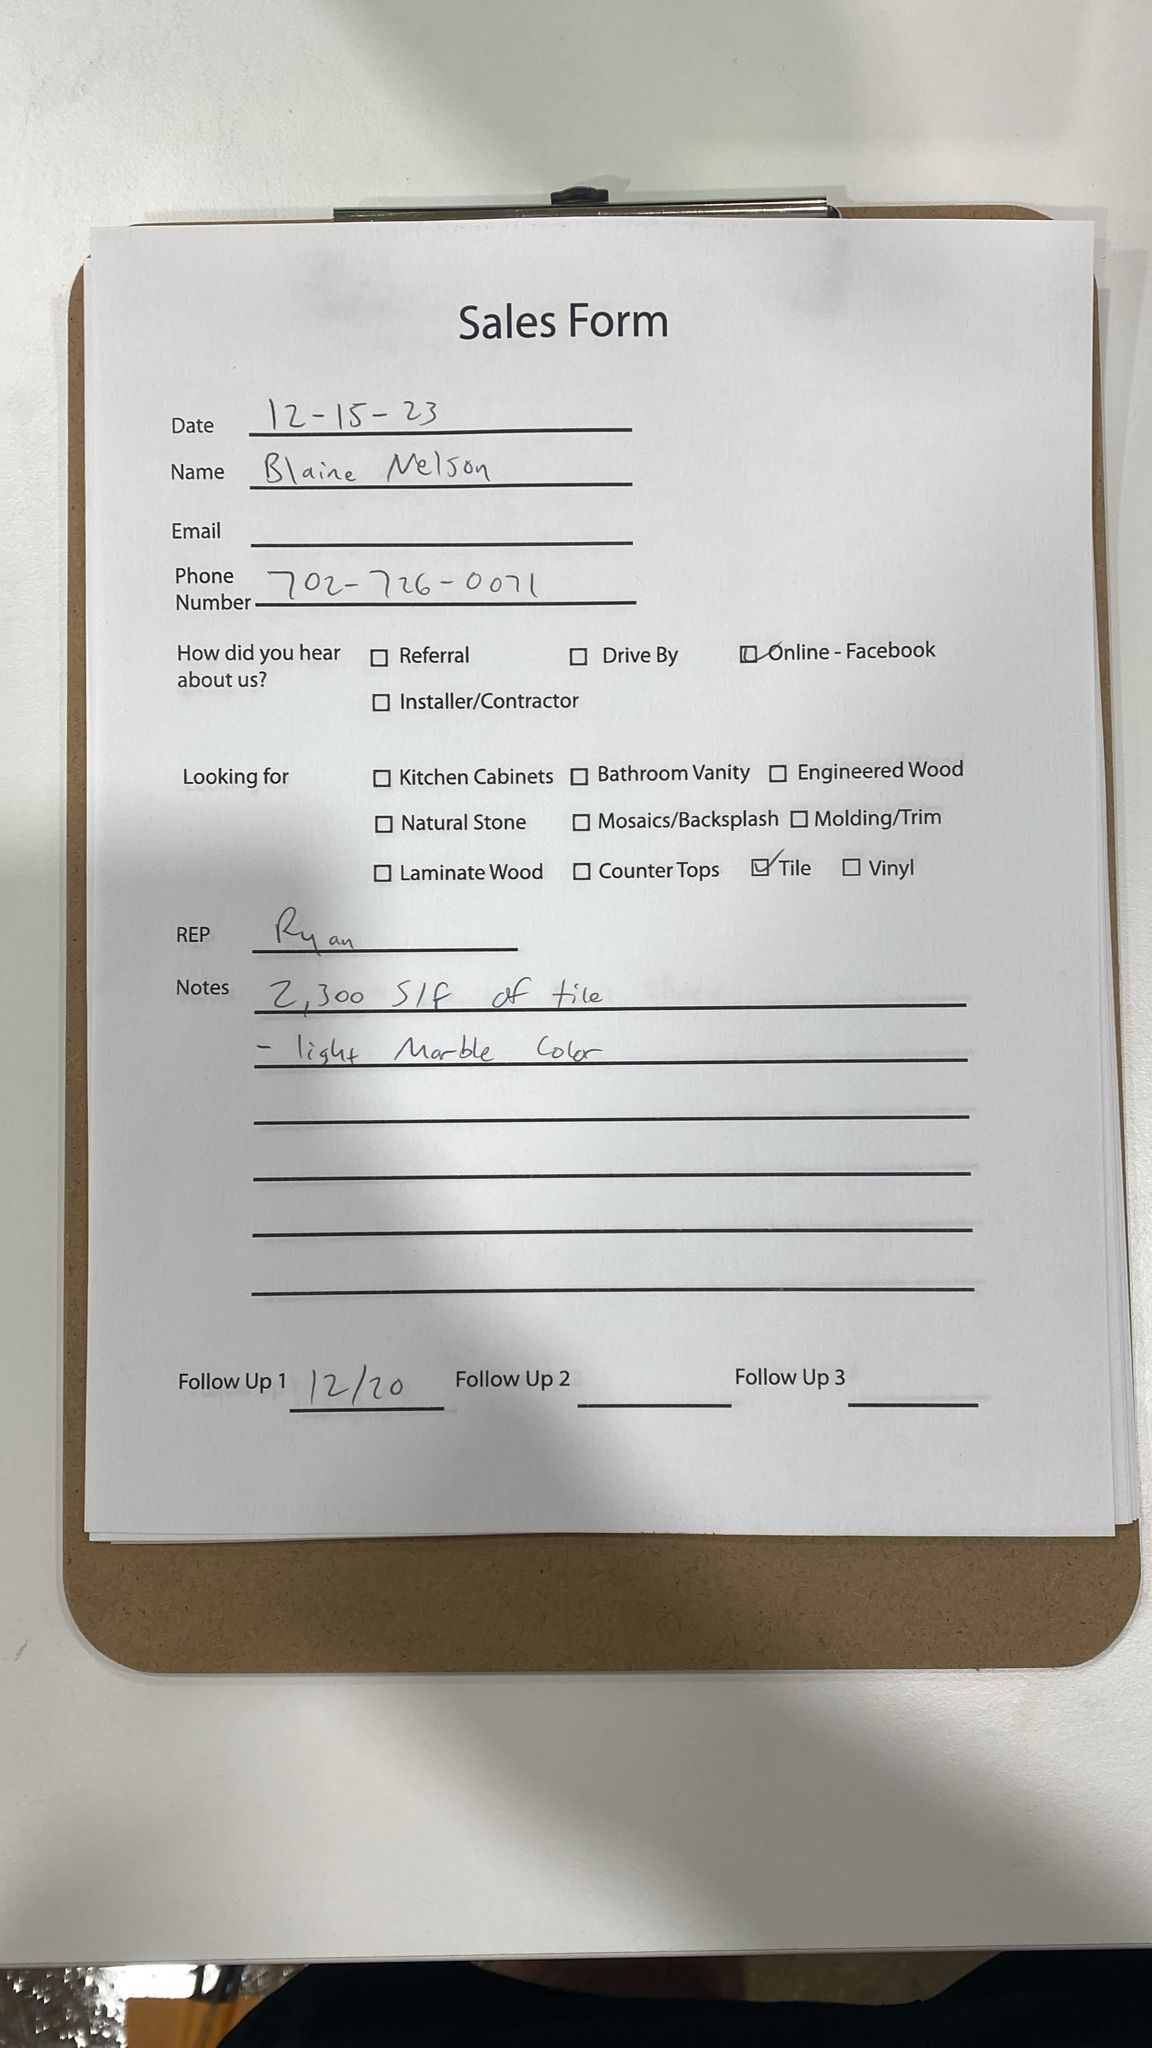 Sales Form
Date 12-15-23
Name Blaine Nelson
Email
Phone
Number 702-726-0071
How did you hear about us? Referral Drive By Online - Facebook
Installer/Contractor
Looking for Kitchen Cabinets Bathroom Vanity Engineered Wood
Natural Stone Mosaics/Backsplash Molding/Trim
Laminate Wood Counter Tops Tile Vinyl
REP Ryan
Notes 2,300 S/f of tile
- light Marble Color
Follow Up 1 12/20 Follow Up 2 Follow Up 3